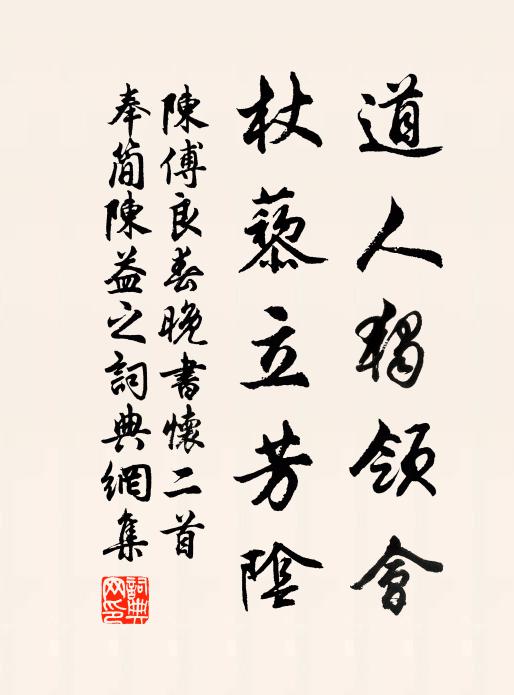 道人獨領會
杖藜立芳陰
陳傅良春晚書懷二首
奉簡陳益之詞典網集
詞典網印